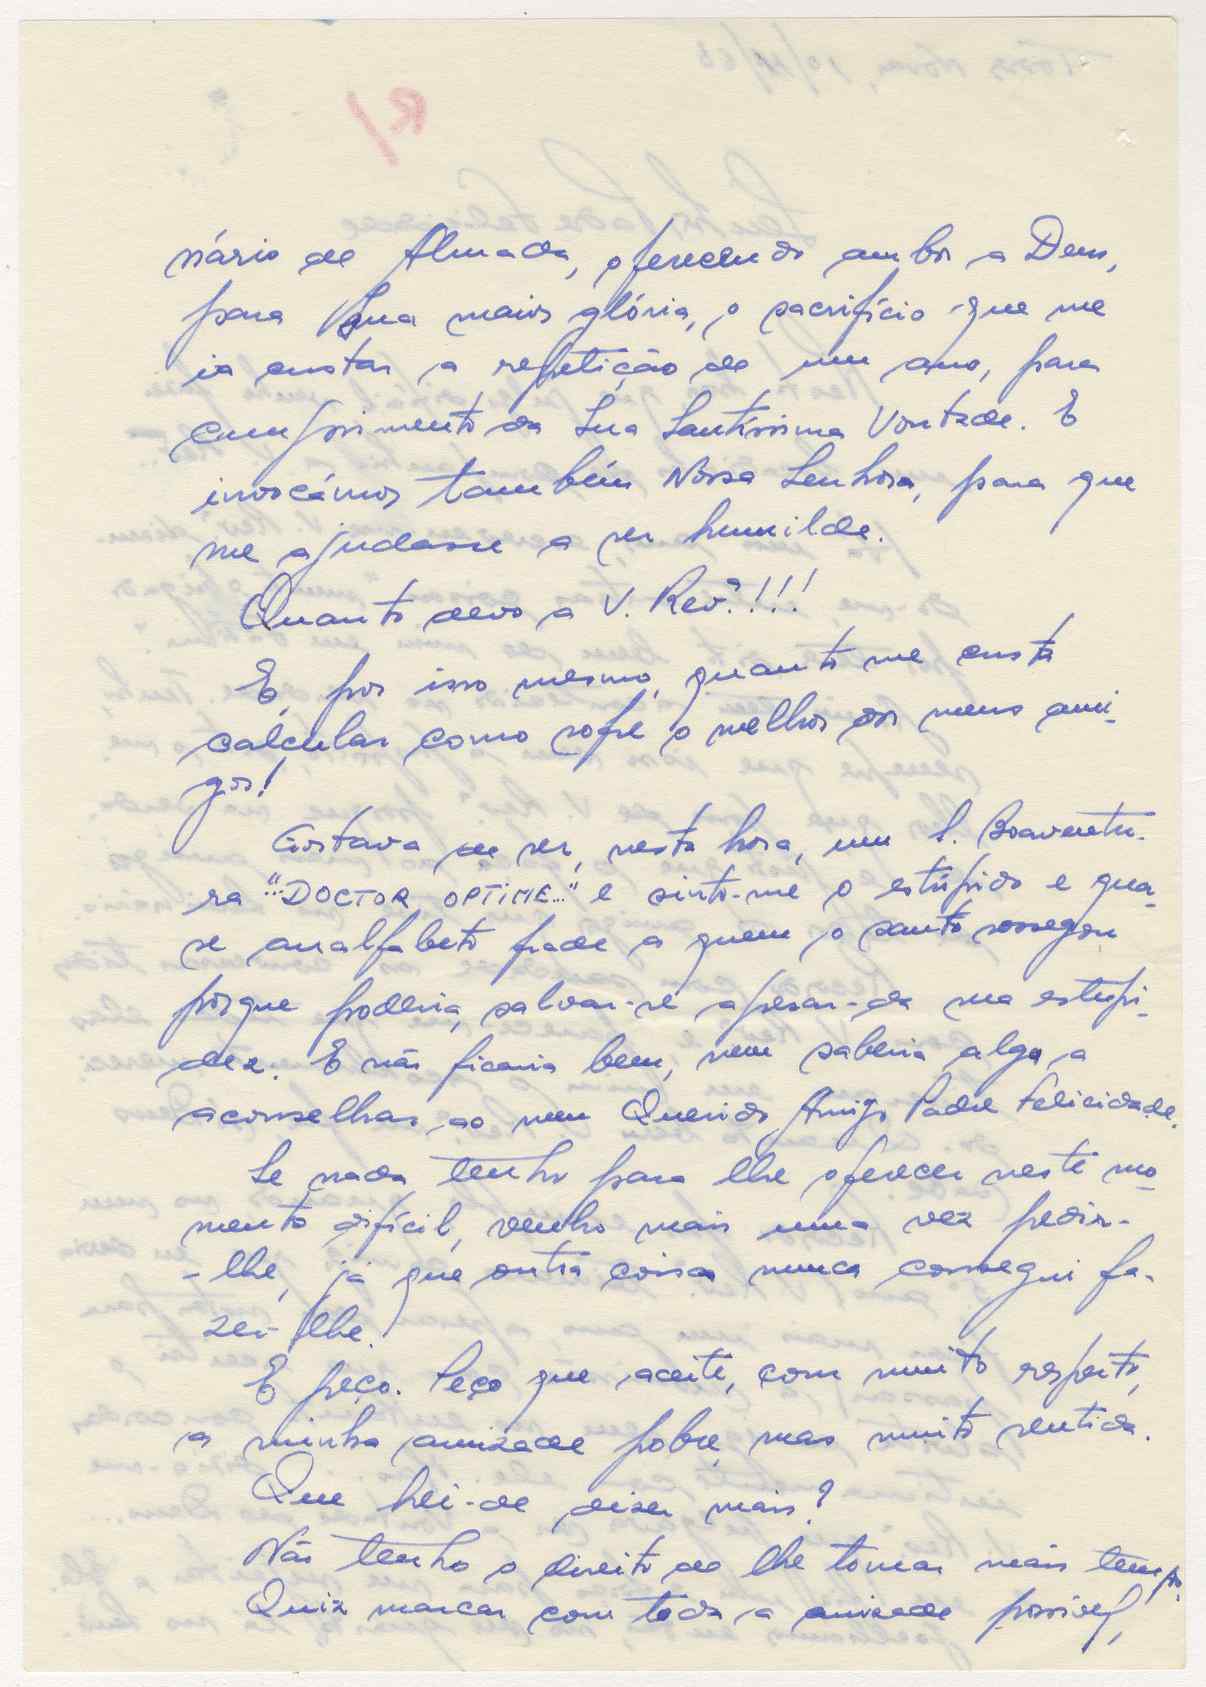 R/
nário de Almada, oferecendo ambos a Deus,
para Sua maior glória, o sacrifício que me
ia custar a repetição de um ano, para
cumprimento da Sua Santíssima Vontade. E
invocámos também Nossa Senhora, para que
me ajudasse a ser humilde.
Quanto devo a V. Revª!!!
E, por isso mesmo, quanto me custa
calcular como sofre o melhor dos meus ami-
gos!
Gostava de ser, nesta hora, um S. Boaventu-
ra "...DOCTOR OPTIME..." e sinto-me o estúpido e qua-
se analfabeto frade a quem o santo sossegou
porque poderia salvar-se apesar da sua estupi-
dez. E não ficaria bem, nem saberia algo a
aconselhar ao meu Querido Amigo Padre Felicidade.
Se nada tenho para lhe oferecer neste mo-
mento difícil, venho mais uma vez pedir-
-lhe, já que outra coisa nunca consegui fa-
zer-lhe.
E peço. Peço que aceite, com muito respeito,
a minha amizade pobre mas muito sentida.
Que hei-de dizer mais?
Não tenho o direito de lhe tomar mais tempo.
Quiz marcar com toda a amizade possível,